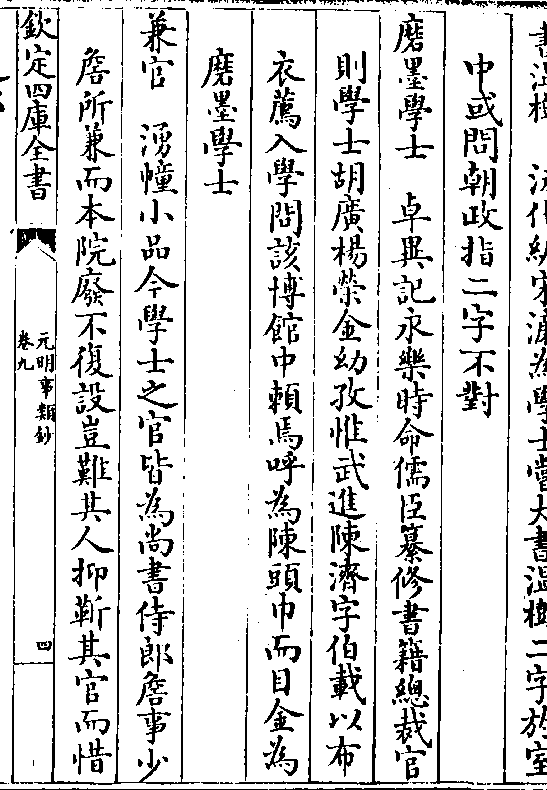 書温樹　　治化紀宋濂為學士嘗大書温樹二字於室
中或問朝政指二字不對
磨墨學士　卓異記永樂時命儒臣纂修書籍總裁官
則學士胡廣楊榮金幼孜惟武進陳濟字伯載以布
衣薦入學問該博館中頼焉呼為陳頭巾而目金為
磨墨學士
兼官　湧幢小品今學士之官皆為尚書侍郎詹事少
詹所兼而本院廢不復設豈難其人抑靳其官而惜
欽定四庫全書
元明事類鈔
卷九
四